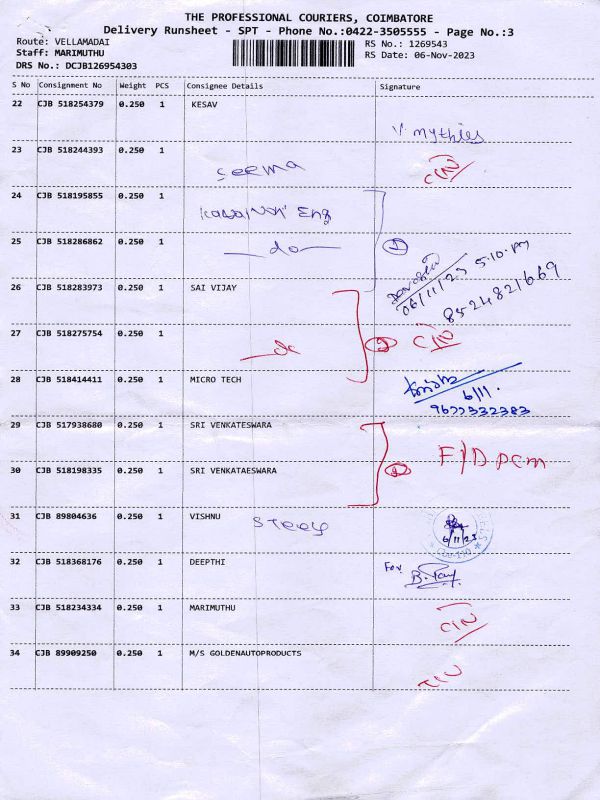 THE PROFESSIONAL COURIERS, COIMBATORE
Delivery Runsheet - SPT - Phone No.:0422-3505555 - Page No.:3
Route: VELLAMADAI
RS No.: 1269543
Staff: MARIMUTHU
RS Date: 06-Nov-2023
DRS No.: DCJB126954303
S No Consignment No Weight PCS Consignee Details Signature
22 CJB 518254379 0.250 1 KESAV
V. mythies
23 CJB 518244393 0.250 1
Seema
24 CJB 518195855 0.250 1
Eng
25 CJB 518286862 0.250 1
do
06/11/23 5.10. PM
26 CJB 518283973 0.250 1 SAI VIJAY
8524821669
27 CJB 518275754 0.250 1
do
28 CJB 518414411 0.250 1 MICRO TECH
6/11.
9677332383
29 CJB 517938680 0.250 1 SRI VENKATESWARA
F/D pcm
30 CJB 518198335 0.250 1 SRI VENKATAESWARA
31 CJB 89804636 0.250 1 VISHNU
6/11/23
32 CJB 518368176 0.250 1 DEEPTHI
For
33 CJB 518234334 0.250 1 MARIMUTHU
34 CJB 89909250 0.250 1 M/S GOLDENAUTOPRODUCTS